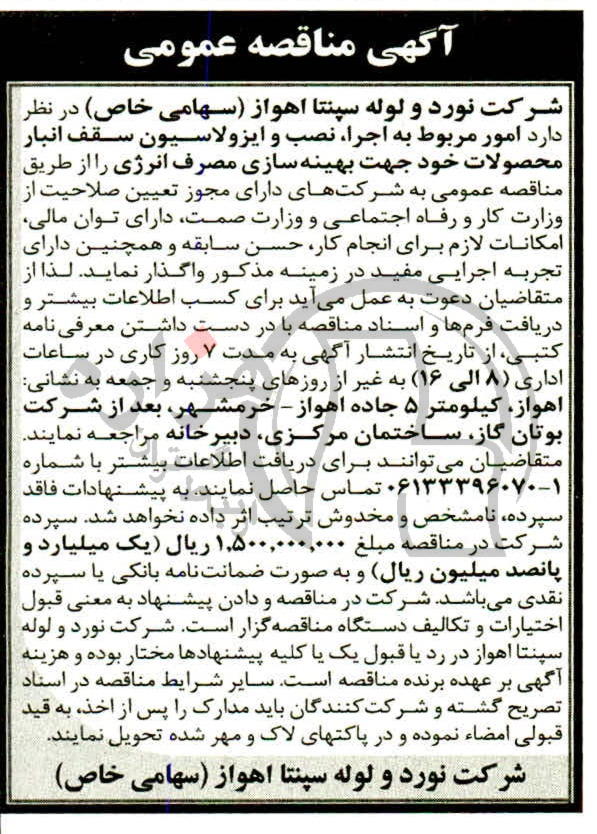 آگهی مناقصه عمومی
شرکت نورد و لوله سپنتا اهواز (سهامی خاص) در نظر
دارد امور مربوط به اجرا، نصب و ایزولاسیون سقف انبار
محصولات خود جهت بهینه‌سازی مصرف انرژی را از طریق
مناقصه عمومی به شرکت‌های دارای مجوز تعیین صلاحیت از
وزارت کار و رفاه اجتماعی و وزارت صمت، دارای توان مالی،
امکانات لازم برای انجام کار، حسن سابقه و همچنین دارای
تجربه اجرایی مفید در زمینه مذکور واگذار نماید. لذا از
متقاضیان دعوت به عمل می‌آید برای کسب اطلاعات بیشتر و
دریافت فرم‌ها و اسناد مناقصه با در دست داشتن معرفی‌نامه
کتبی، از تاریخ انتشار آگهی به مدت ۷ روز کاری در ساعات
اداری (۸ الی ۱۶) به غیر از روزهای پنجشنبه و جمعه به نشانی:
اهواز، کیلومتر ۵ جاده اهواز - خرمشهر، بعد از شرکت
بوتان گاز، ساختمان مرکزی، دبیرخانه مراجعه نمایند.
متقاضیان می‌توانند برای دریافت اطلاعات بیشتر با شماره
۰۶۱۳۳۳۹۶۰۷۰-۱ تماس حاصل نمایند. به پیشنهادات فاقد
سپرده، نامشخص و مخدوش ترتیب اثر داده نخواهد شد. سپرده
شرکت در مناقصه مبلغ ۱,۵۰۰,۰۰۰,۰۰۰ ریال (یک میلیارد و
پانصد میلیون ریال) و به صورت ضمانت‌نامه بانکی یا سپرده
نقدی می‌باشد. شرکت در مناقصه و دادن پیشنهاد به معنی قبول
اختیارات و تکالیف دستگاه مناقصه‌گزار است. شرکت نورد و لوله
سپنتا اهواز در رد یا قبول یک یا کلیه پیشنهادها مختار بوده و هزینه
آگهی بر عهده برنده مناقصه است. سایر شرایط مناقصه در اسناد
تصریح گشته و شرکت‌کنندگان باید مدارک را پس از اخذ، به قید
قبولی امضاء نموده و در پاکتهای لاک و مهر شده تحویل نمایند.
شرکت نورد و لوله سپنتا اهواز (سهامی خاص)